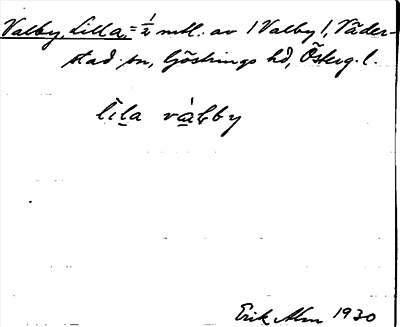 Valby, Lilla, = ½ mtl. av / Valby /, Väder-
stad sn, Göstrings hd, Österg. l.
lìla vàlby
Erik Alm 1930